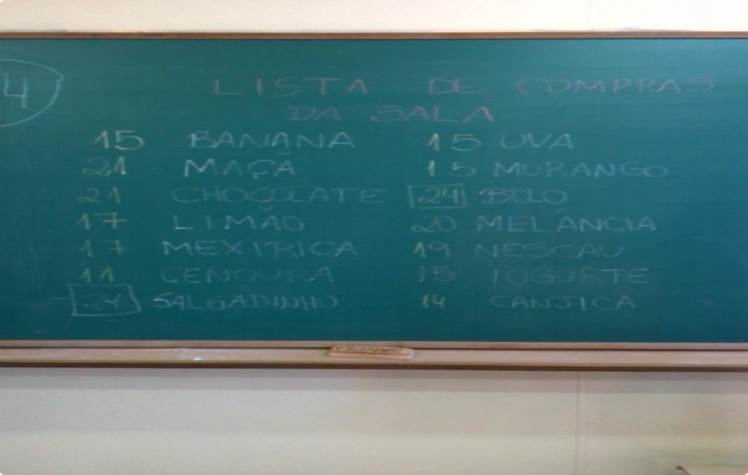 4
LISTA DE COMPRAS
DA SALA
15 BANANA 15 UVA
21 MAÇÃ 15 MORANGO
21 CHOCOLATE 24 BOLO
17 LIMÃO 20 MELANCIA
17 MEXIRICA 19 NESCAU
11 CENOURA 15 IOGURTE
24 SALGADINHO 14 CANJICA